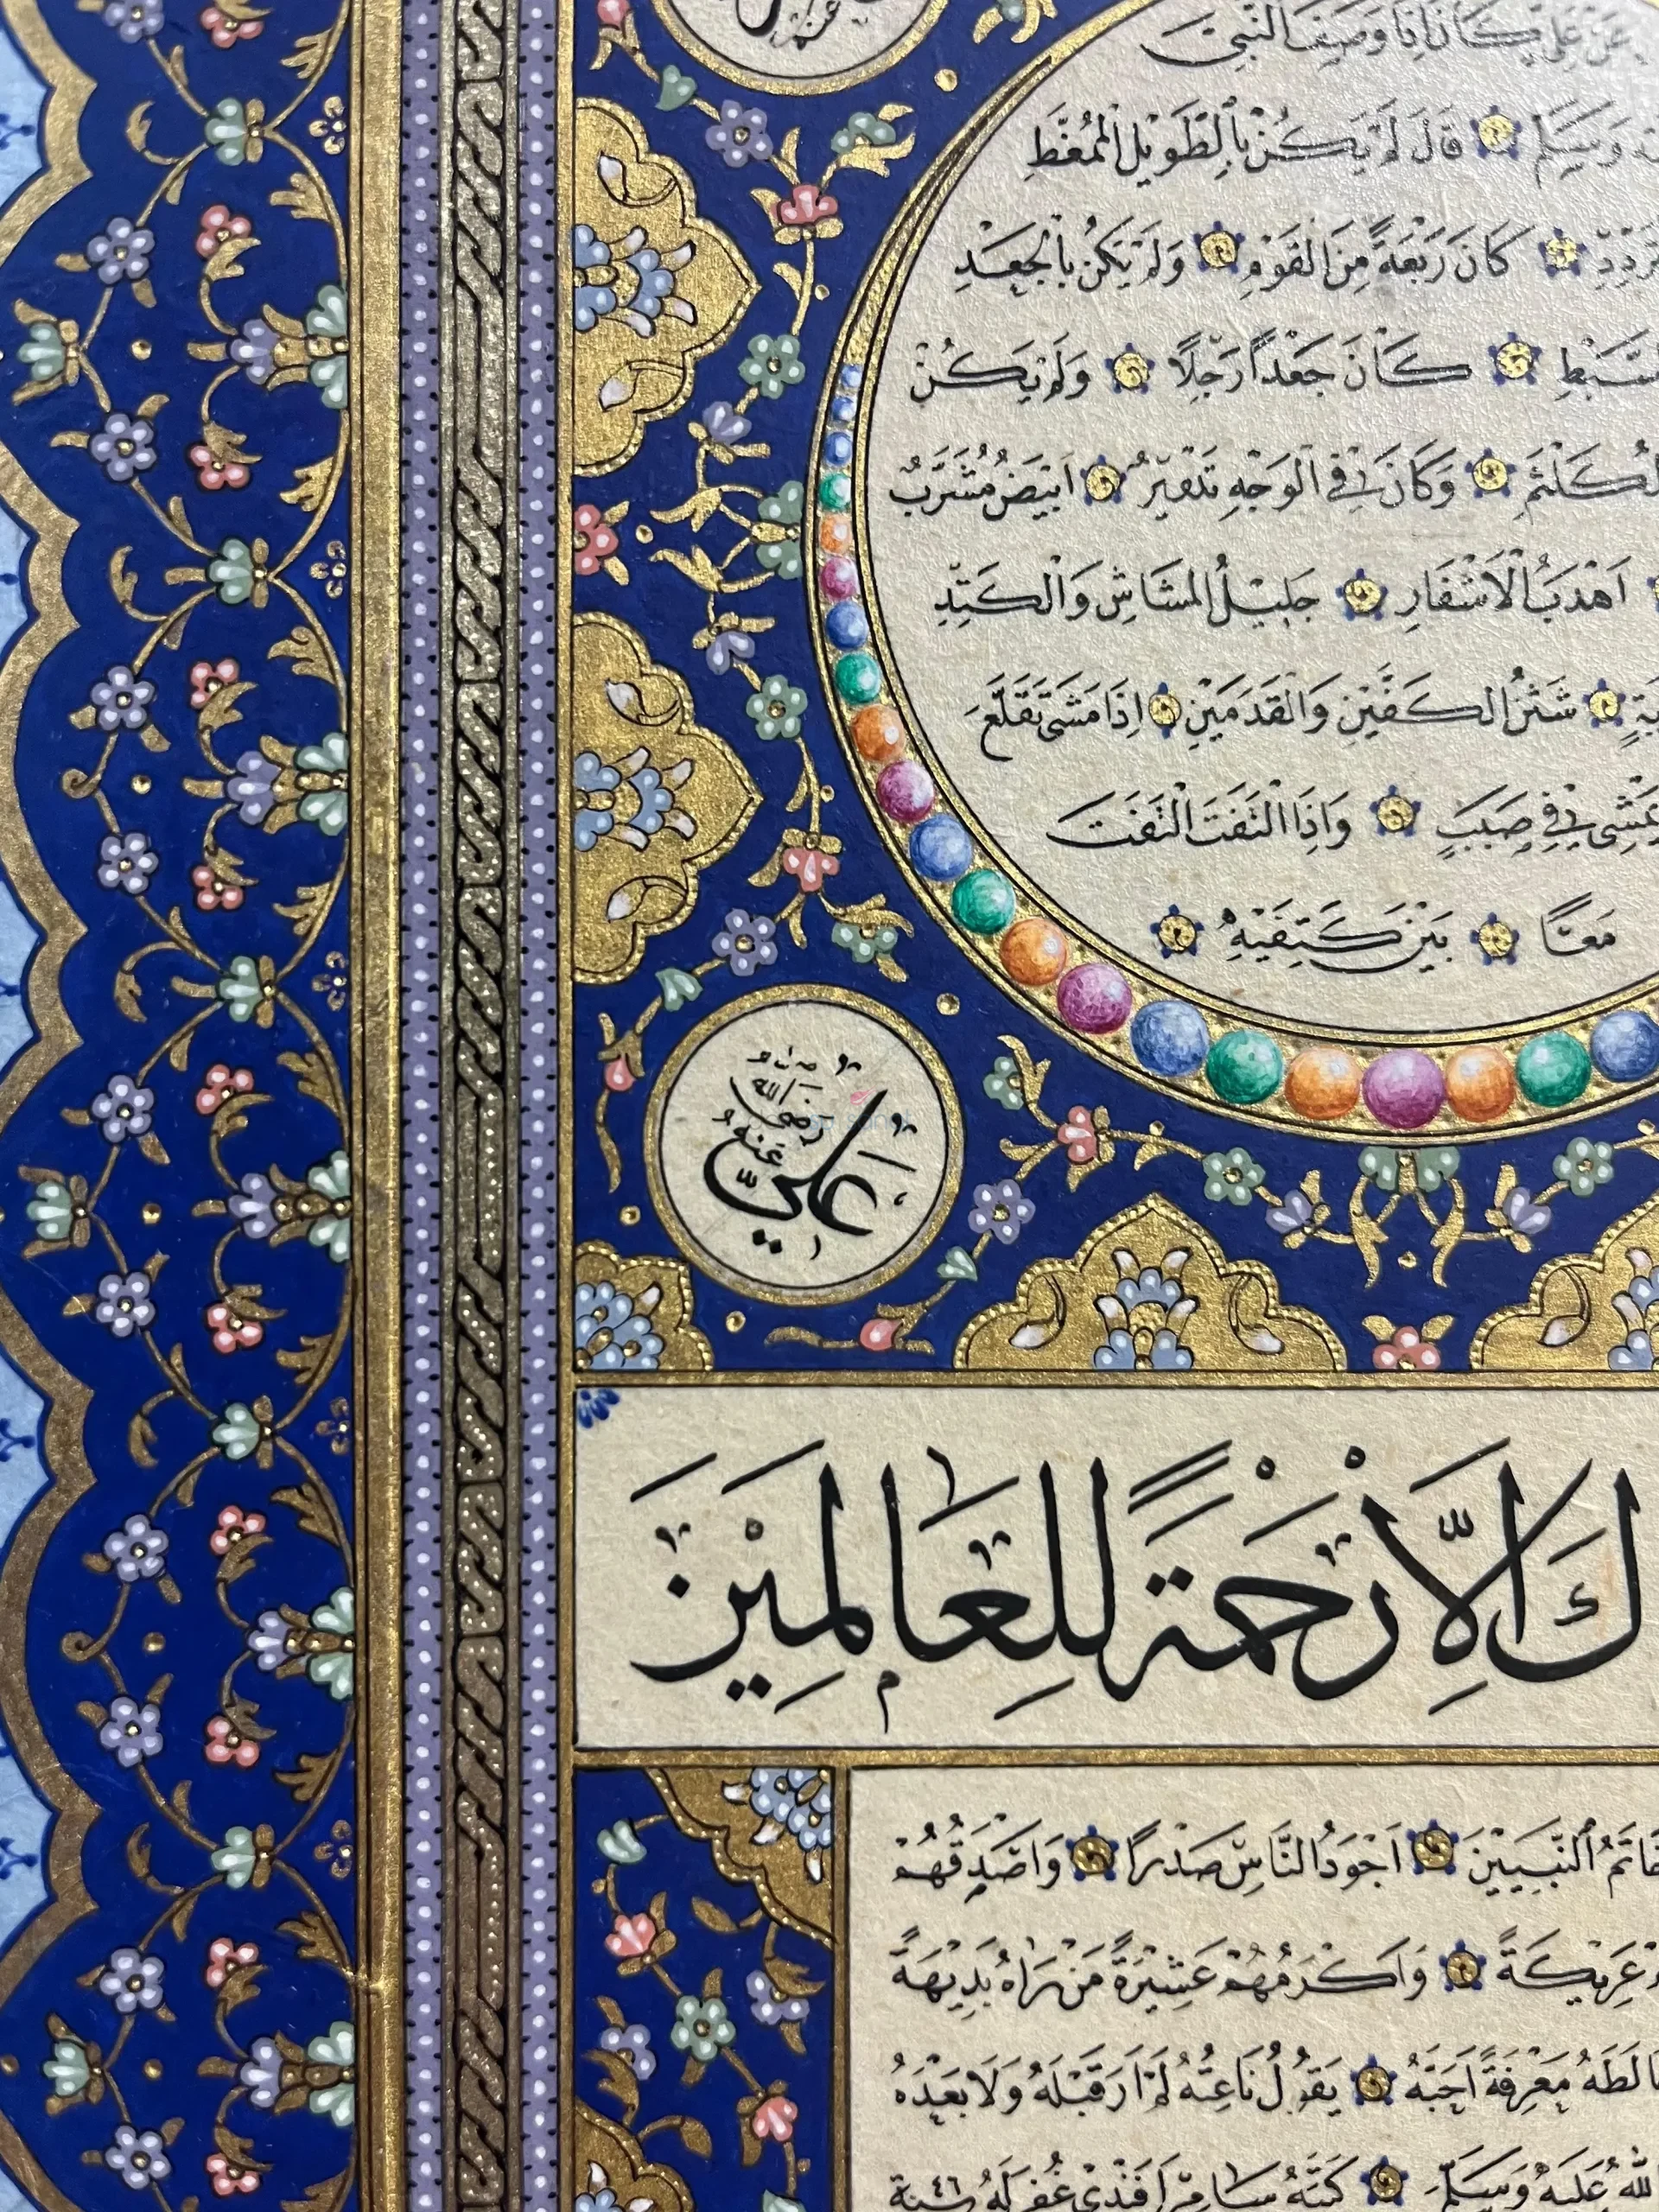 عَنْ عَلِيٍّ كَانَ اِذَا وَصَفَ النَّبِيَّ
وَسَلَّمَ قَالَ لَمْ يَكُنْ بِالطَّوِيلِ الْمُمَّغَطِ
كَانَ رَبْعَةً مِنَ الْقَوْمِ وَلَمْ يَكُنْ بِالْجَعْدِ
كَانَ جَعْداً رَجِلاً وَلَمْ يَكُنْ
وَكَانَ فِي الْوَجْهِ تَدْوِيرٌ اَبْيَضُ مُشْرَبٌ
اَهْدَبُ الْاَشْفَارِ جَلِيلُ الْمُشَاشِ وَالْكَتَدِ
شَثْنُ الْكَفَّيْنِ وَالْقَدَمَيْنِ اِذَا مَشَى تَقَلَّعَ
فِي صَبَبٍ وَاِذَا الْتَفَتَ الْتَفَتَ
مَعًا بَيْنَ كَتِفَيْهِ
عَلِيٌّ رَضِيَ اللهُ عَنْهُ
كَ اِلَّا رَحْمَةً لِلْعَالَمِينَ
خَاتَمُ النَّبِيِّينَ اَجْوَدُ النَّاسِ صَدْرًا وَاَصْدَقُهُمْ
عَرِيكَةً وَاَكْرَمُهُمْ عَشِيرَةً مَنْ رَاٰهُ بَدِيهَةً
مَعْرِفَةً اَحَبَّهُ يَقُولُ نَاعِتُهُ لَمْ اَرَ قَبْلَهُ وَلَا بَعْدَهُ
اللهُ عَلَيْهِ وَسَلَّمَ كَتَبَهُ سَامِي اَفَنْدِي غُفِرَ لَهُ سنة